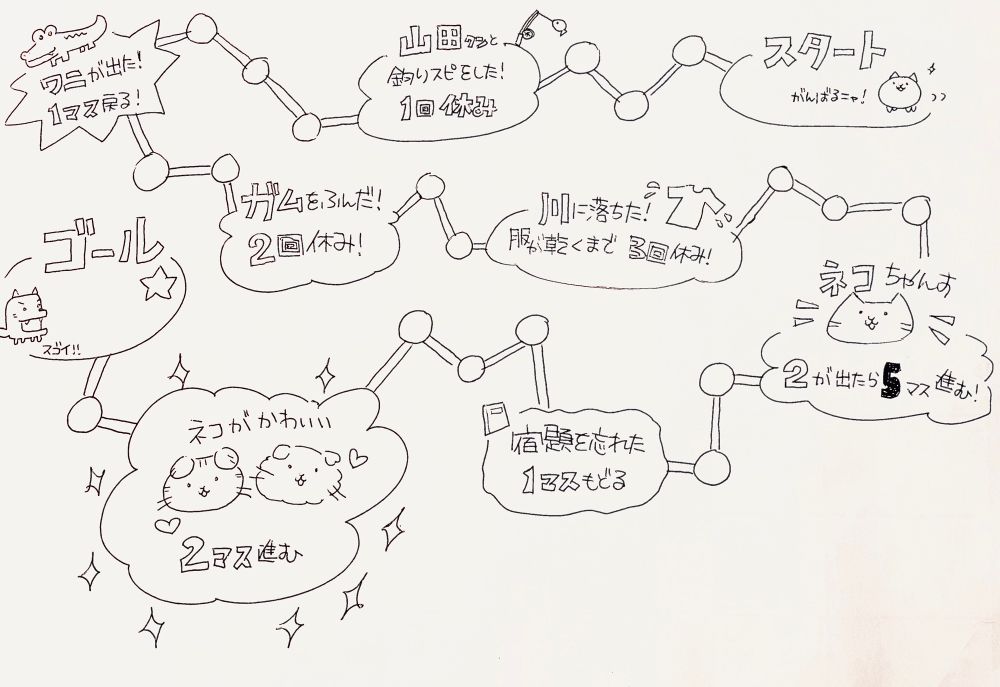 スタート
がんばるニャ!
山田クンと
釣りスピをした!
1回休み
ワニが出た!
1マス戻る!
ガムをふんだ!
2回休み!
川に落ちた!
服が乾くまで3回休み!
ネコちゃんす
2が出たら5マス進む!
宿題を忘れた
1マスもどる
ネコがかわいい
2マス進む
ゴール
スゴイ!!